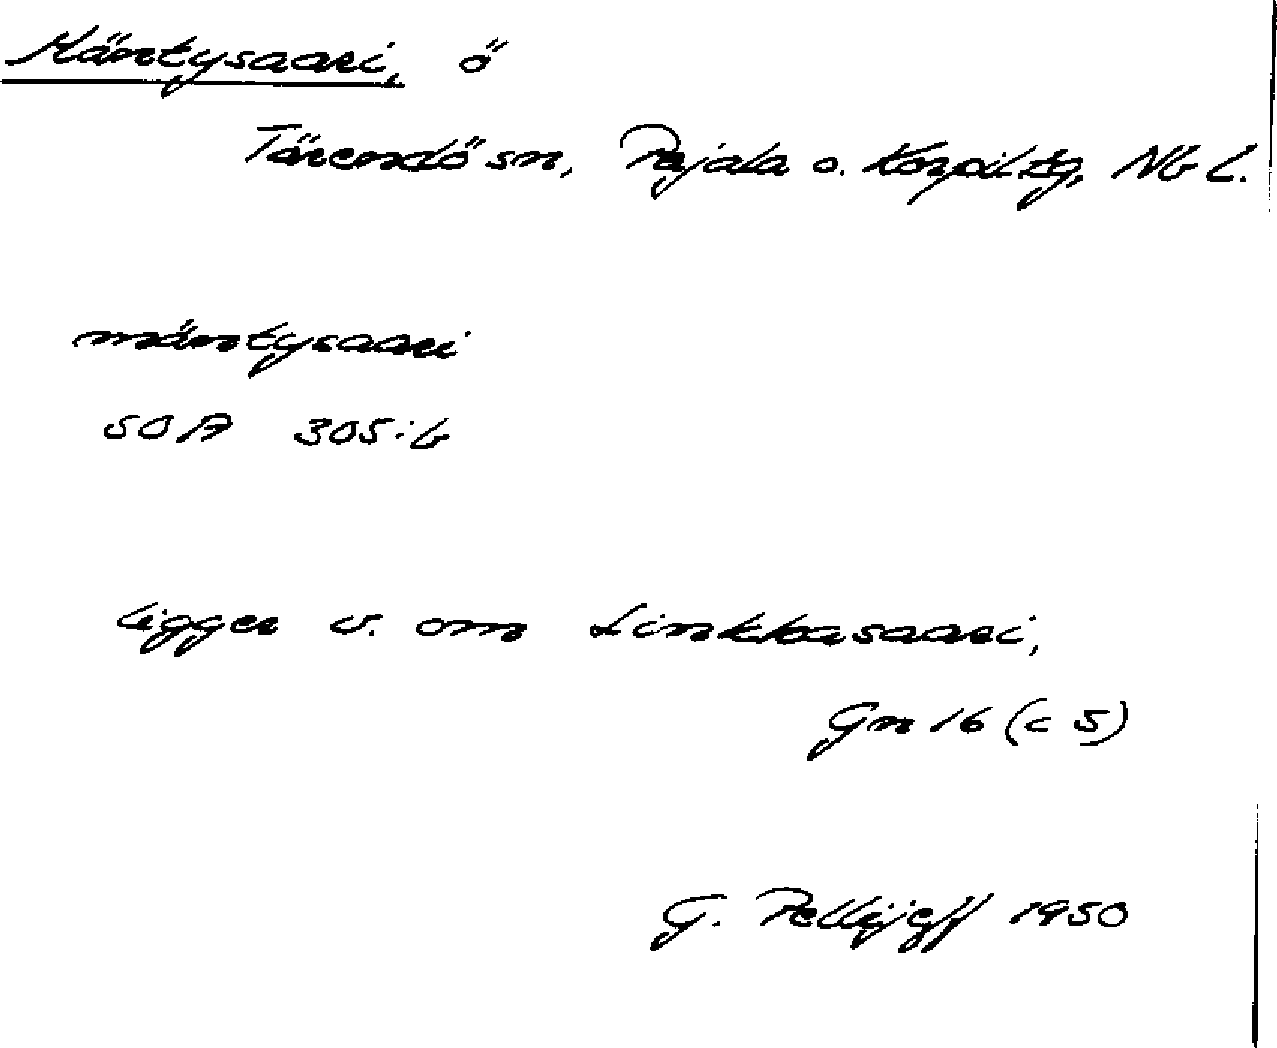 Mäntysaari, ö
Tärendö sn, Pajala o. Korpil. tg, Nb L.
mäntysaari
SOA 305:b
ligger v. om Linkkasaari,
Gn 16 (c 5)
G. Pellijeff 1950